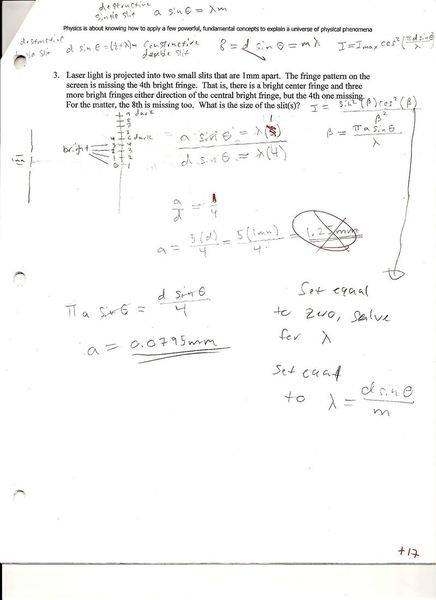 destructive
single slit a sin θ = λm
Physics is about knowing how to apply a few powerful, fundamental concepts to explain a universe of physical phenomena
destructive
slit d sin θ = (½+λ)m Constructive double slit
δ = d sin θ = mλ
I = Imax cos² (πd sinθ / λ)
3. Laser light is projected into two small slits that are 1mm apart. The fringe pattern on the
screen is missing the 4th bright fringe. That is, there is a bright center fringe and three
more bright fringes either direction of the central bright fringe, but the 4th one missing.
For the matter, the 8th is missing too. What is the size of the slit(s)?
I = sin²(β)cos²(β) / β²
β = πa sinθ / λ
dark
dark
bright
4
3
2
1
0
1mm
a sin θ = λ(1)
d sin θ = λ(4)
a/d = 1/4
a = 5(d)/4 = 5(1mm)/4 = 1.25mm
πa sin θ = d sin θ / 4
a = 0.0795mm
Set equal
to zero, solve
for λ
Set equal
to λ = d sin θ / m
+17